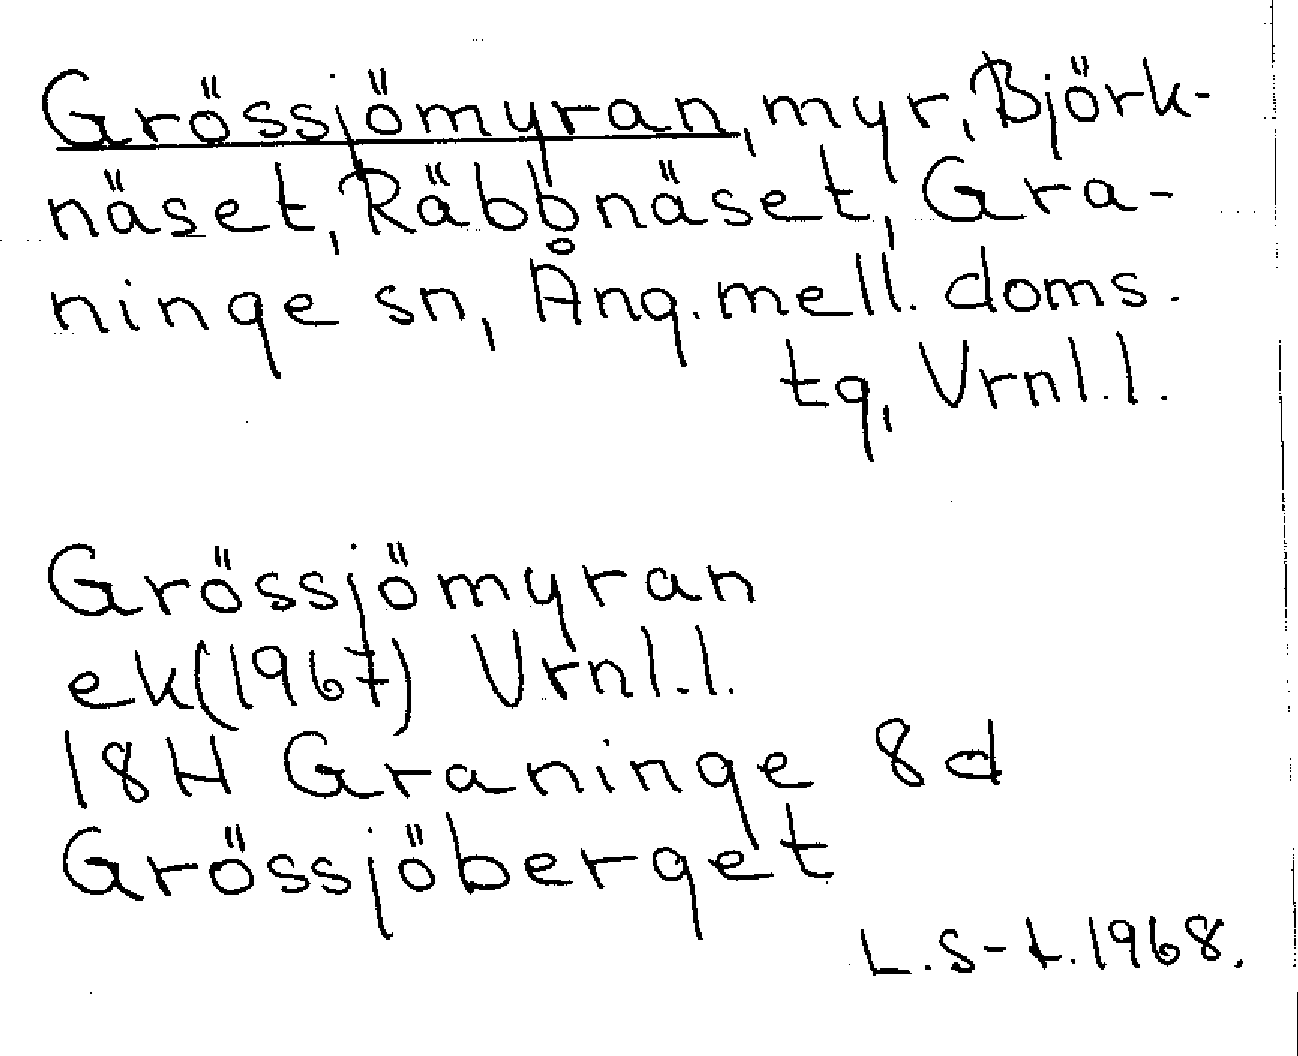 Grössjömyran, myr, Björk-
näset, Räbbnäset, Gra-
ninge sn, Ång. mell. doms.
tg, Vrnl.l.
Grössjömyran
ek(1967) Vrnl.l.
18H Graninge 8d
Grössjöberget
L.S-t.1968.